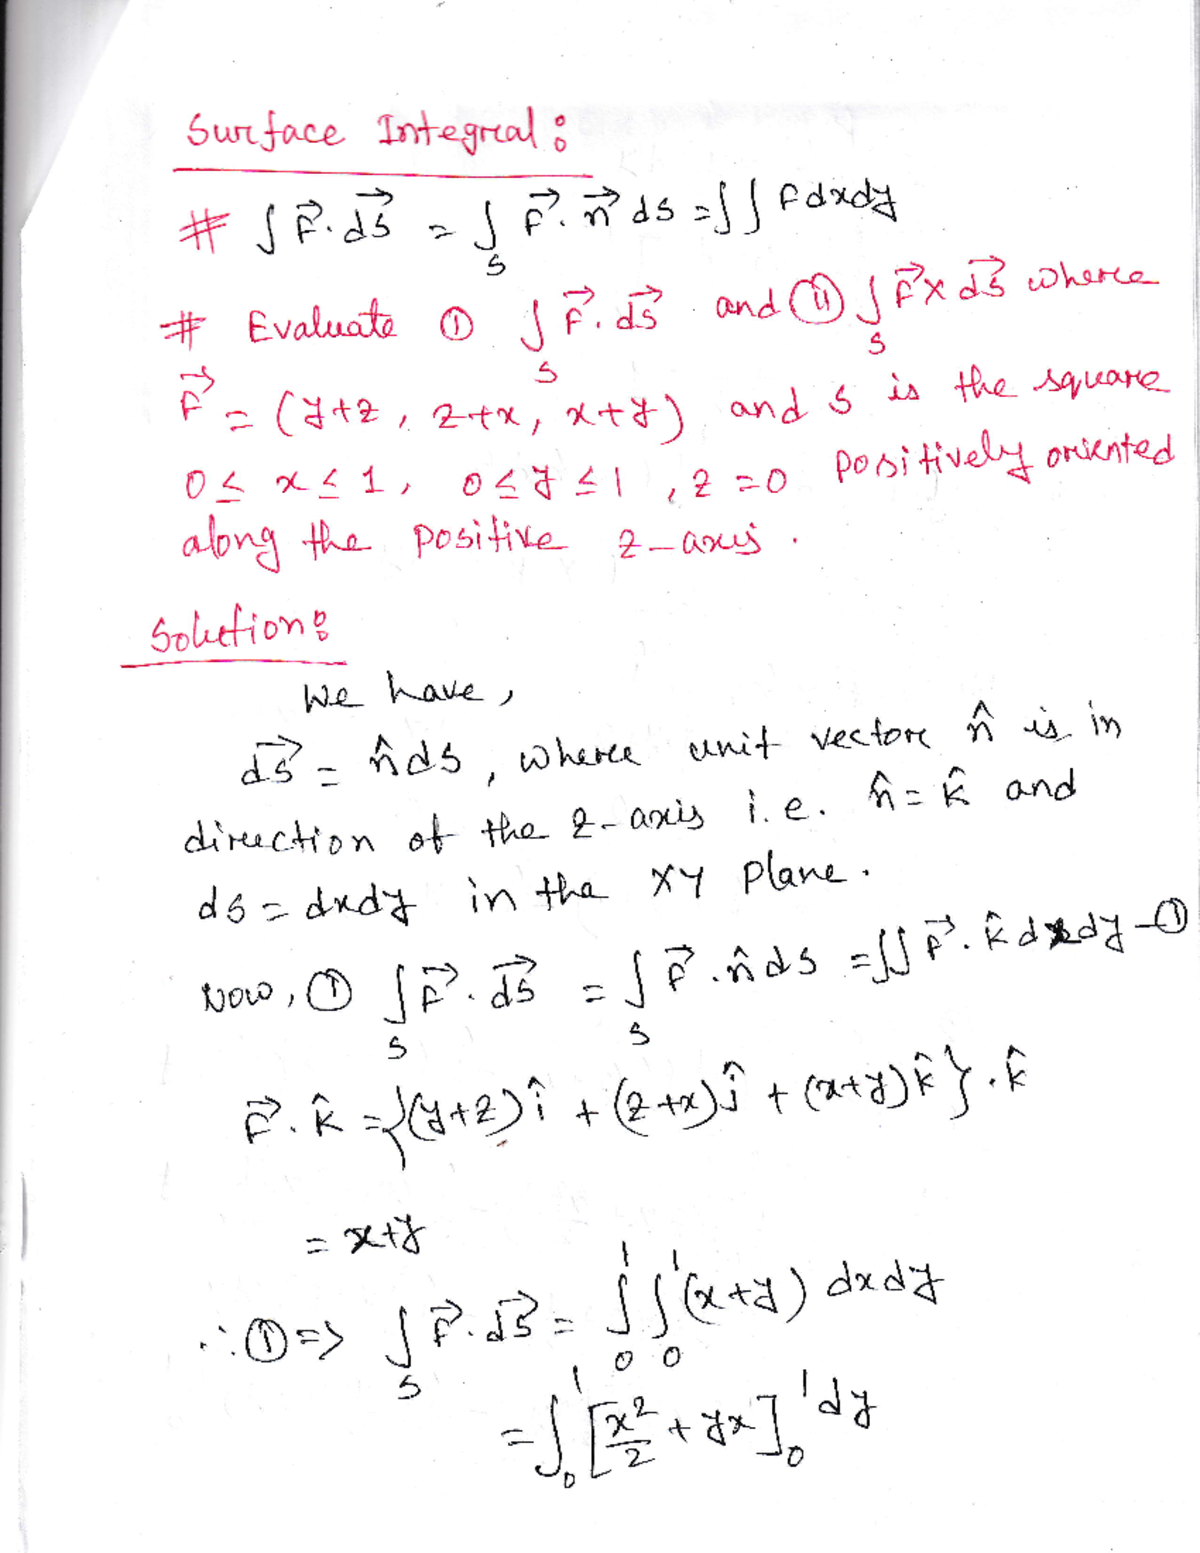 Surface Integral:
# ∫ F⃗. ds⃗ = ∫_S F⃗. n⃗ ds = ∫∫ F dxdy
# Evaluate ① ∫_S F⃗. ds⃗ and ⑪ ∫_S F⃗ x ds⃗ where
F⃗ = (y+z, z+x, x+y) and s is the square
0 ≤ x ≤ 1, 0 ≤ y ≤ 1, z = 0 positively oriented
along the positive z-axis.
Solution:
We have,
ds⃗ = n̂ ds, where unit vector n̂ is in
direction of the z-axis i.e. n̂ = k̂ and
ds = dxdy in the XY plane.
Now, ① ∫_S F⃗. ds⃗ = ∫_S F⃗. n̂ ds = ∫∫ F⃗. k̂ dxdy - ①
F⃗. k̂ = {(y+z)î + (z+x)ĵ + (x+y)k̂}. k̂
= x+y
∴ ① => ∫_S F⃗. ds⃗ = ∫_0^1 ∫_0^1 (x+y) dxdy
= ∫_0^1 [x²/2 + yx]_0^1 dy